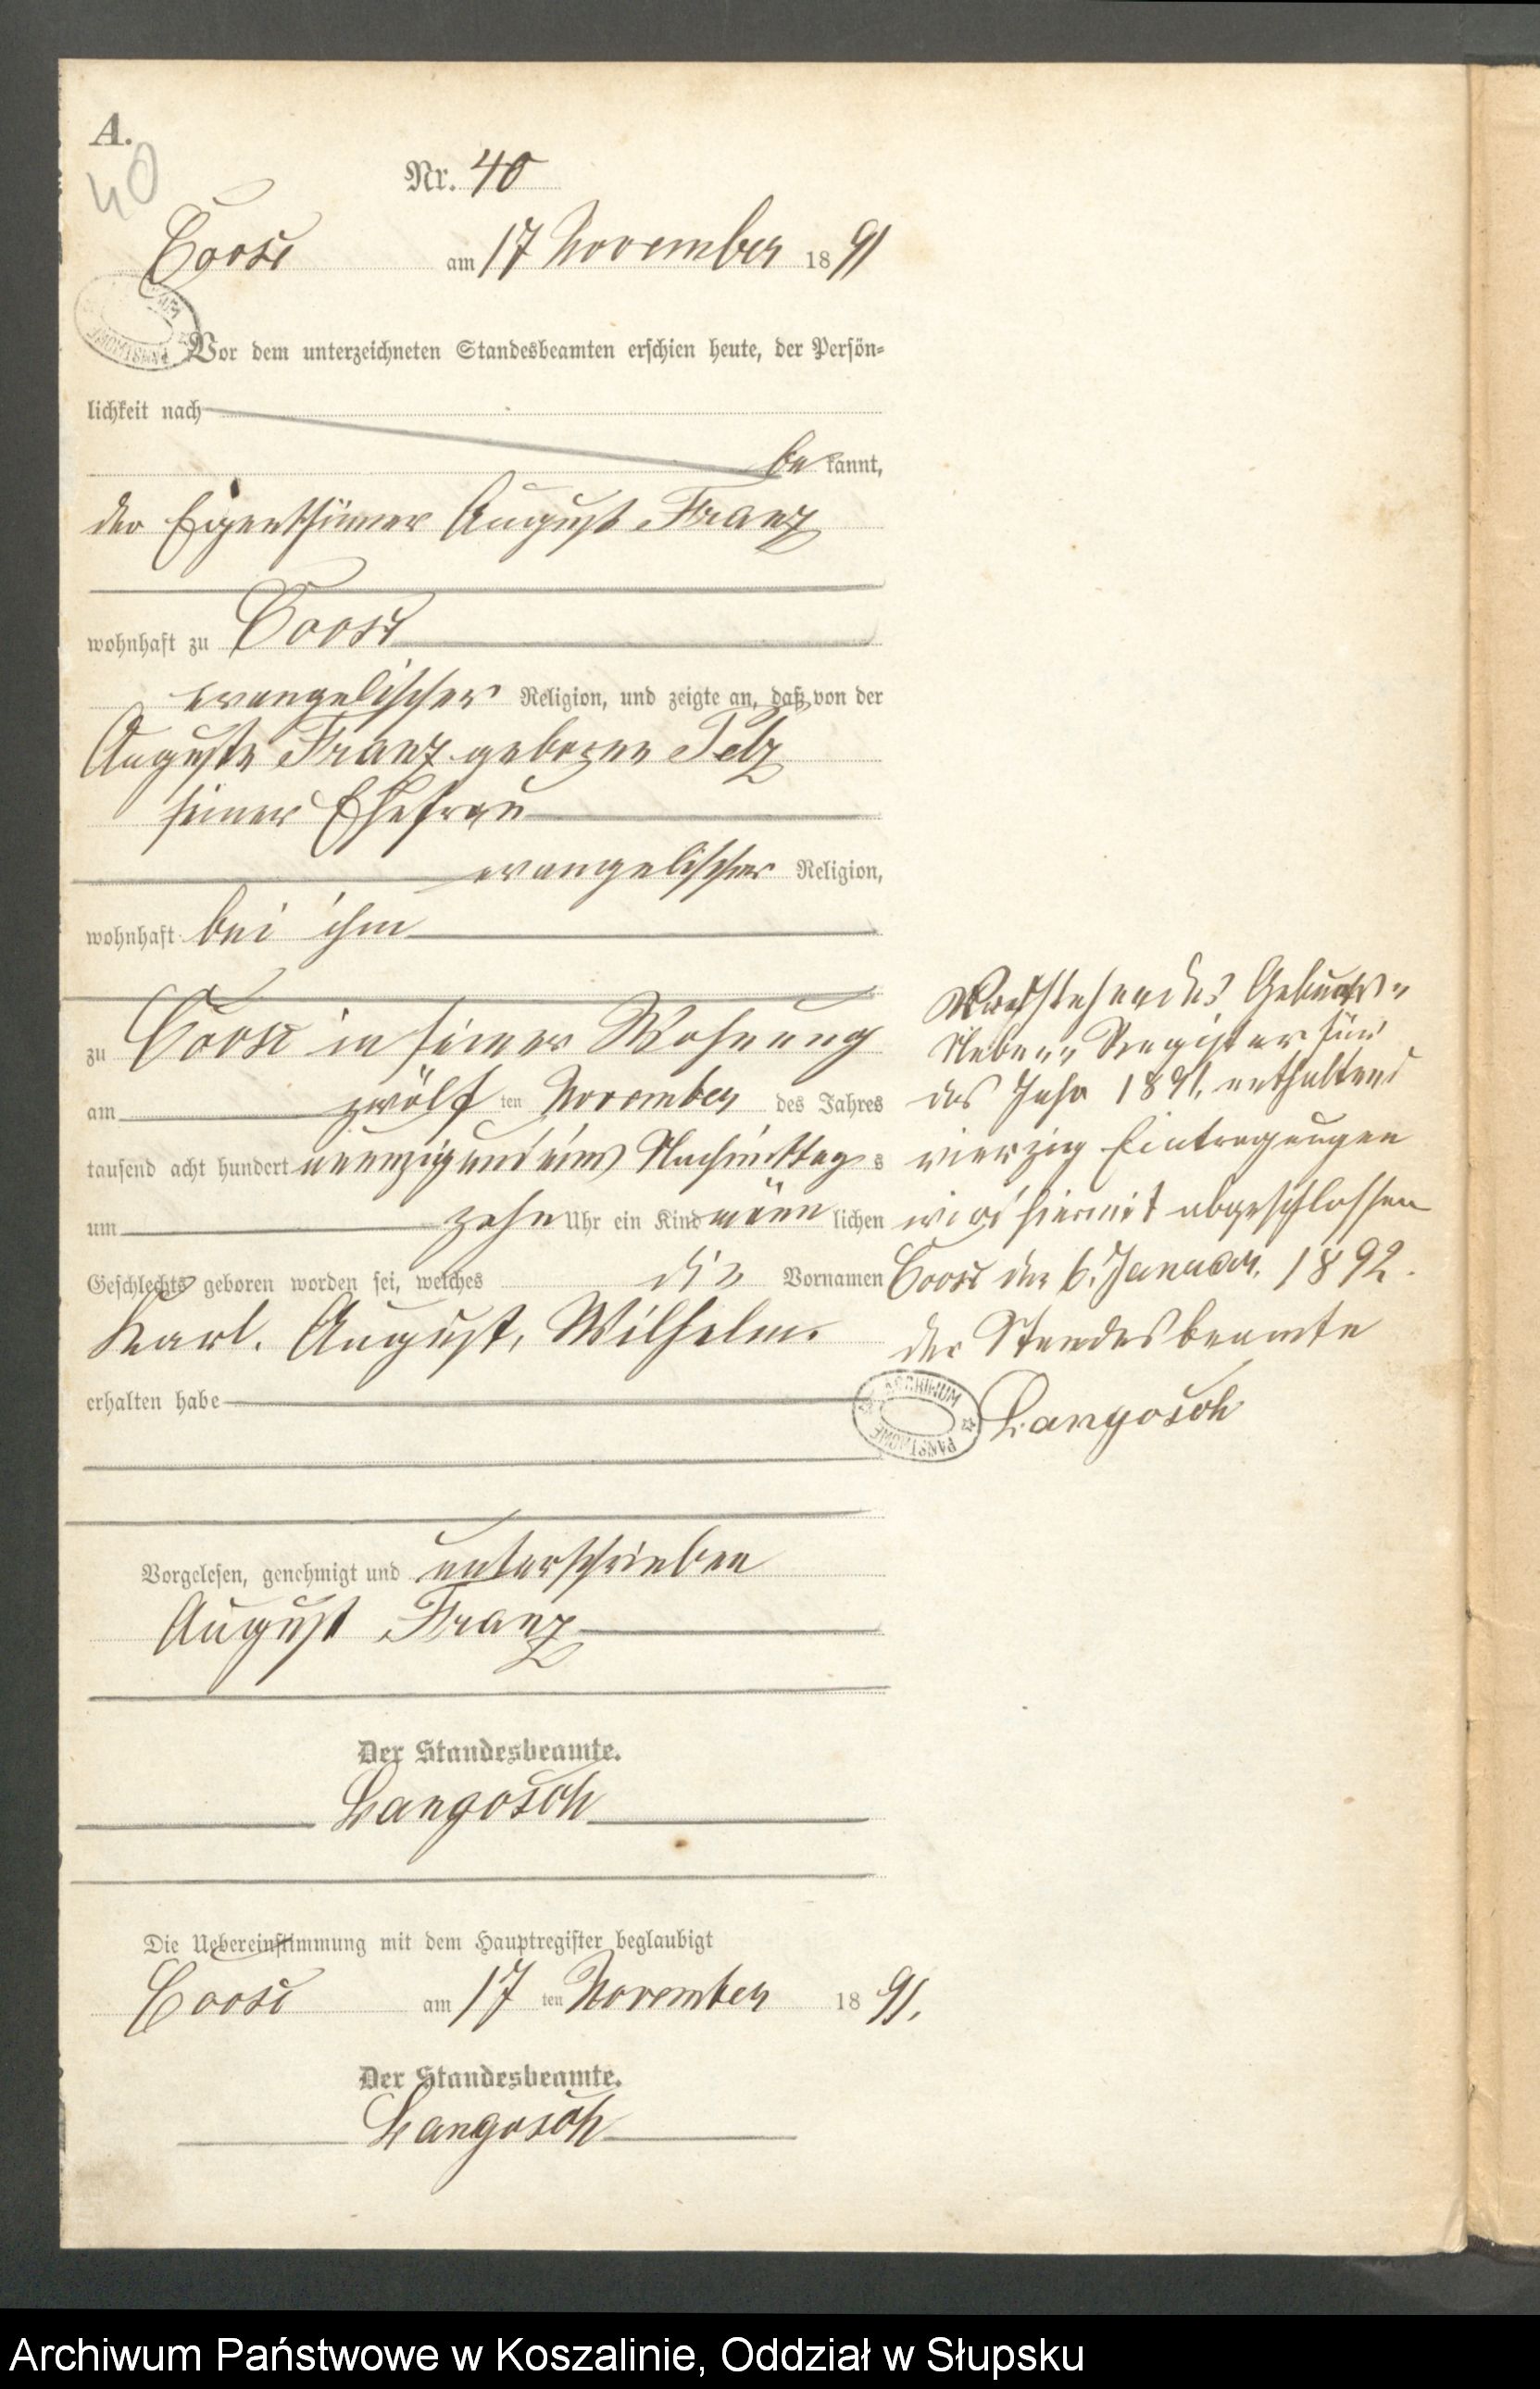 A.
40
Nr. 40
Coose am 17 November 1891
Vor dem unterzeichneten Standesbeamten erschien heute, der Persön-
lichkeit nach
be kannt,
der Eigenthümer August Franz
wohnhaft zu Coose
evangelischer Religion, und zeigte an, daß von der
Auguste Franz geborene Pelz
seiner Ehefrau
evangelischer Religion,
wohnhaft bei ihm
zu Coose in seiner Wohnung
am zwölf ten November des Jahres
tausend acht hundert neunzig und eins Nachmittag s
um zehn Uhr ein Kind männ lichen
Geschlechts geboren worden sei, welches die Vornamen
Karl. August, Wilhelm.
erhalten habe
Vorgelesen, genehmigt und unterschrieben
August Franz
Der Standesbeamte.
Langosch
Die Uebereinstimmung mit dem Hauptregister beglaubigt
Coose am 17 ten November 1891.
Der Standesbeamte.
Langosch
Vorstehendes Geburts-
Neben-Register für
das Jahr 1891, enthaltend
vierzig Eintragungen
wird hiermit abgeschlossen
Coose den 6. Januar. 1892.
der Standesbeamte
Langosch
ARCHIWUM PAŃSTWOWE
Archiwum Państwowe w Koszalinie, Oddział w Słupsku